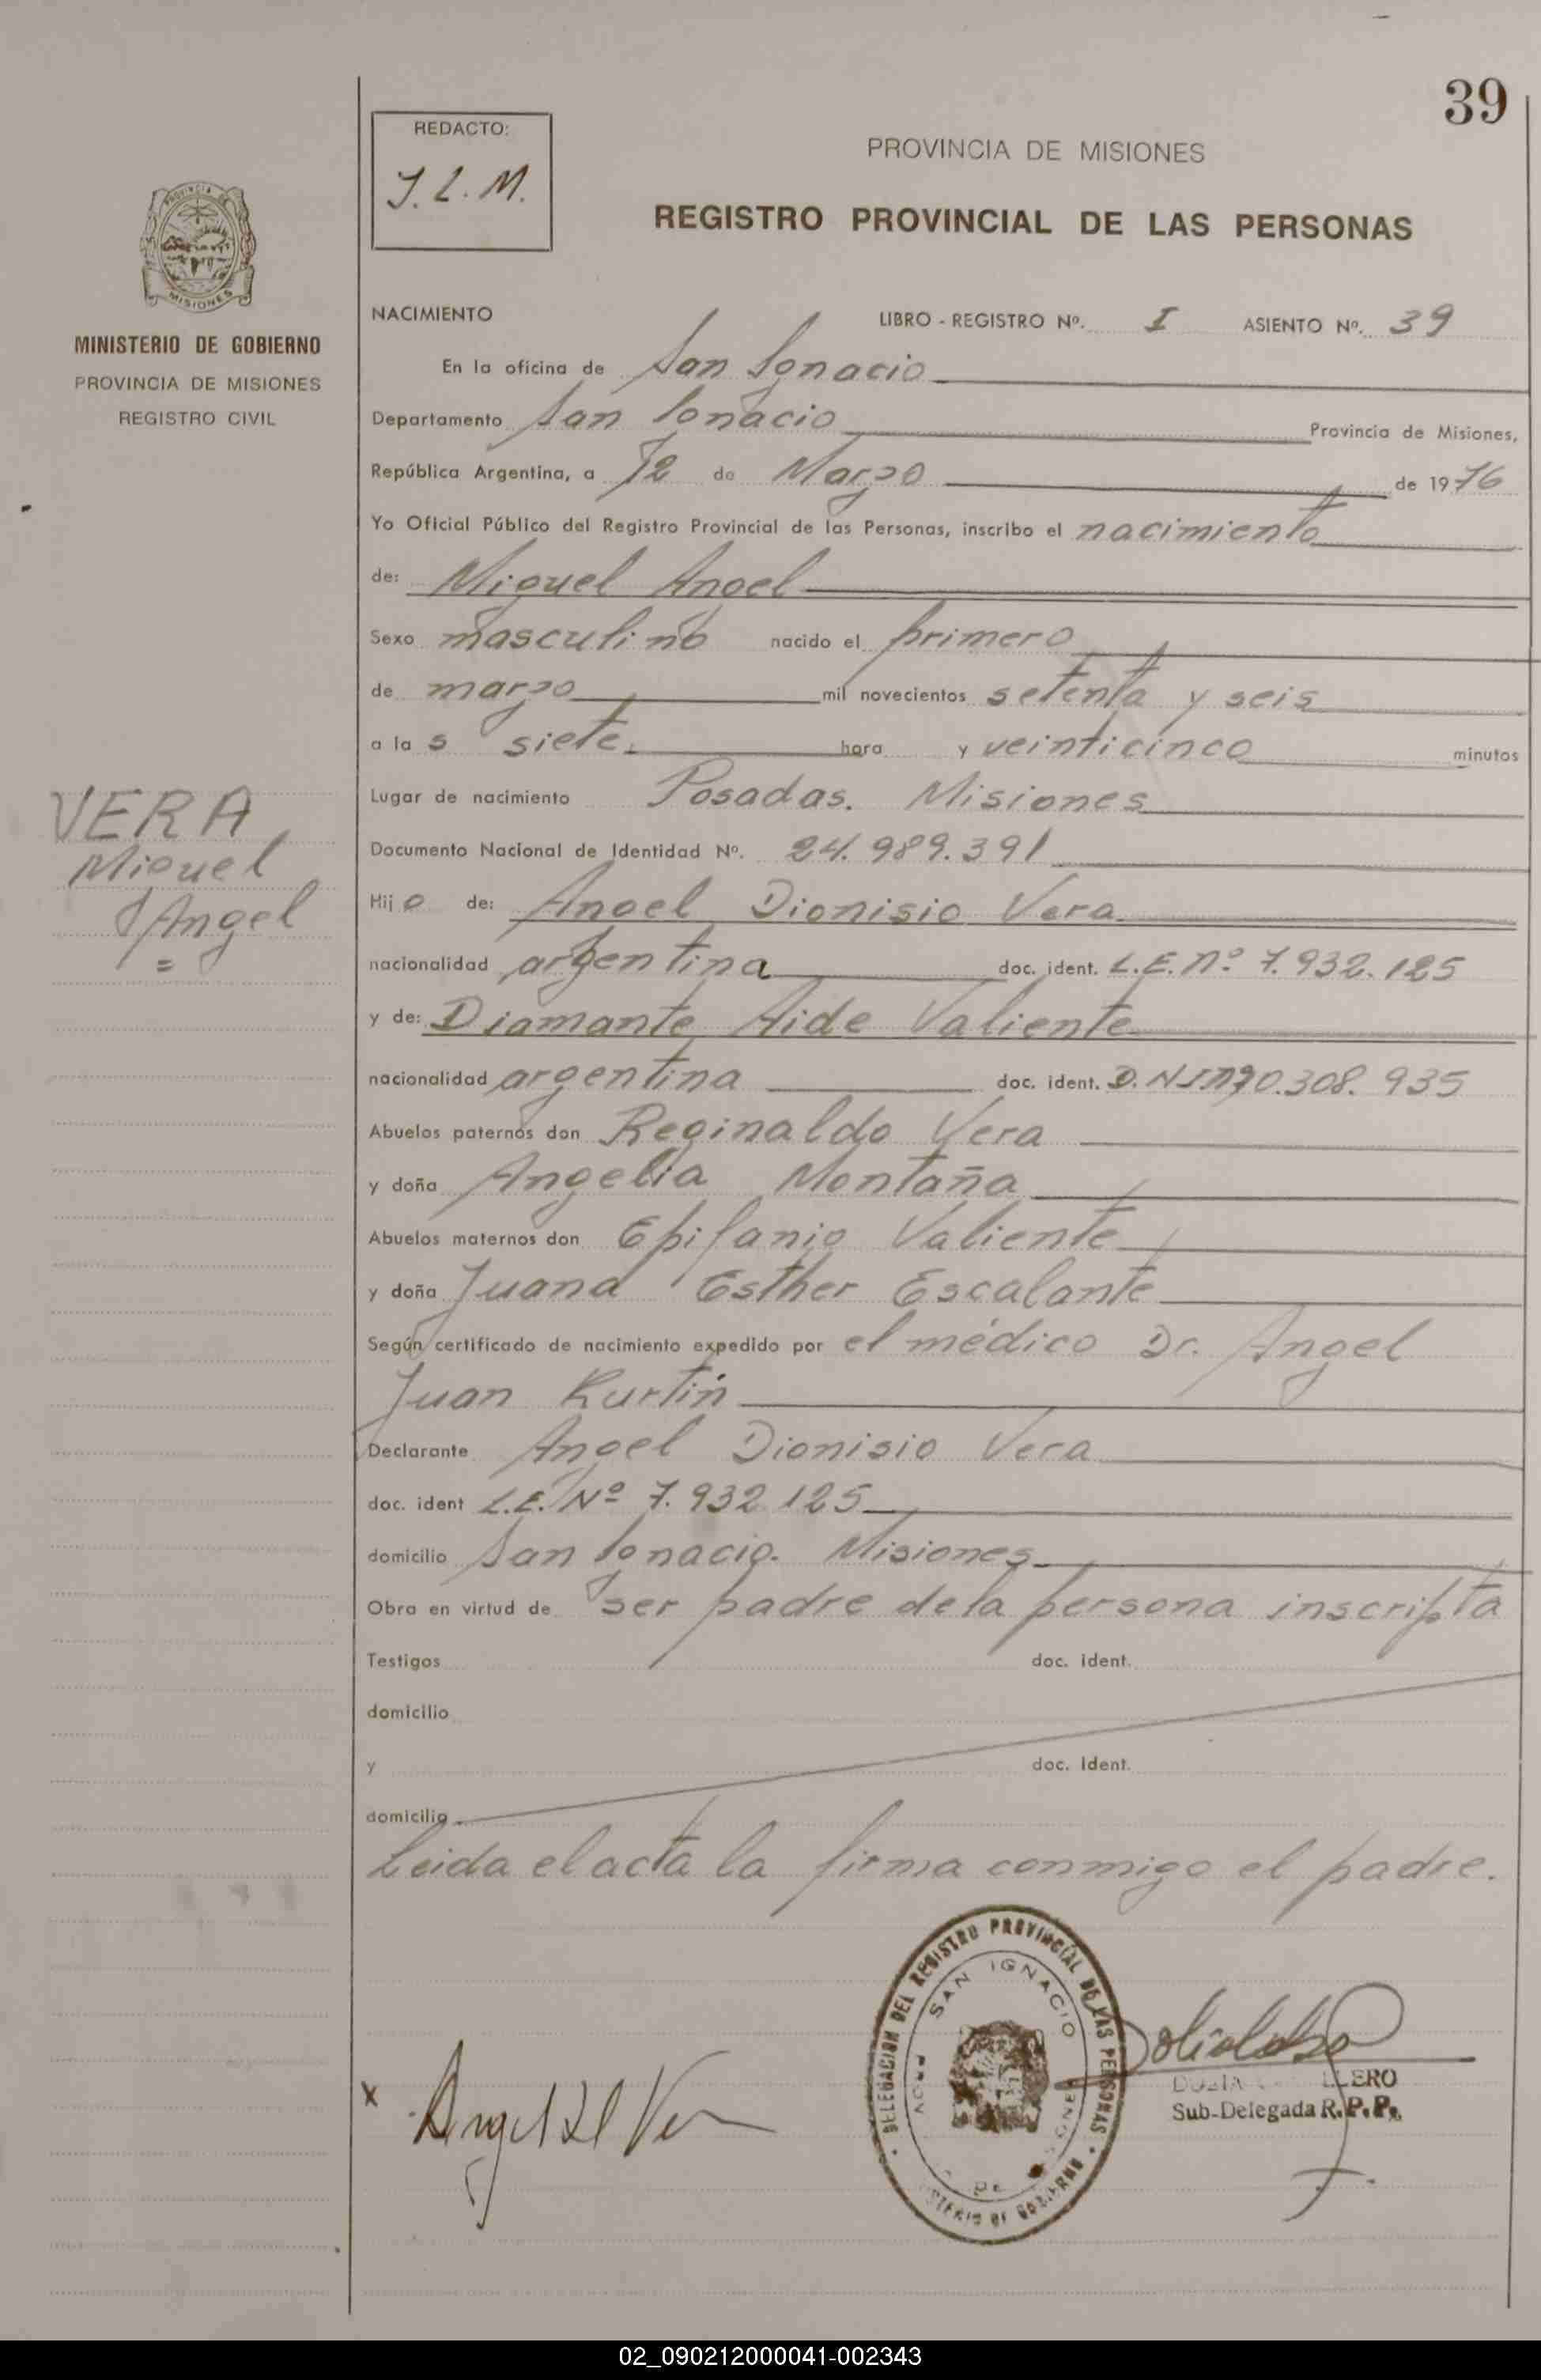 39
REDACTO:
J. L. M.
PROVINCIA DE MISIONES
REGISTRO PROVINCIAL DE LAS PERSONAS
PROVINCIA DE
MISIONES
MINISTERIO DE GOBIERNO
PROVINCIA DE MISIONES
REGISTRO CIVIL
NACIMIENTO
LIBRO - REGISTRO Nº. I ASIENTO Nº. 39
En la oficina de San Ignacio
Departamento San Ignacio Provincia de Misiones,
República Argentina, a 12 de Marzo de 1976
Yo Oficial Público del Registro Provincial de las Personas, inscribo el nacimiento
de: Miguel Angel
Sexo masculino nacido el primero
de marzo mil novecientos setenta y seis
a la s siete hora y veinticinco minutos
Lugar de nacimiento Posadas. Misiones
Documento Nacional de Identidad Nº. 24.989.391
VERA
Miguel
Angel
=
Hijo de: Angel Dionisio Vera
nacionalidad argentina doc. ident. L.E. nº 7.932.125
y de: Diamante Aide Valiente
nacionalidad argentina doc. ident. D.N.I. 308.935
Abuelos paternos don Reginaldo Vera
y doña Angelia Montaña
Abuelos maternos don Epifanio Valiente
y doña Juana Esther Escalante
Según certificado de nacimiento expedido por el médico Dr. Angel
Juan Kurtin
Declarante Angel Dionisio Vera
doc. ident L.E. Nº 7.932.125
domicilio San Ignacio. Misiones
Obra en virtud de ser padre de la persona inscripta
Testigos doc. ident.
domicilio
y doc. Ident.
domicilio
Leida el acta la firma conmigo el padre.
DELEGACION DEL REGISTRO PROVINCIAL DE LAS PERSONAS
SAN IGNACIO
DE
DE GOBIERNO
x Angel Ver
Sub-Delegada R.P.P.
02_090212000041-002343